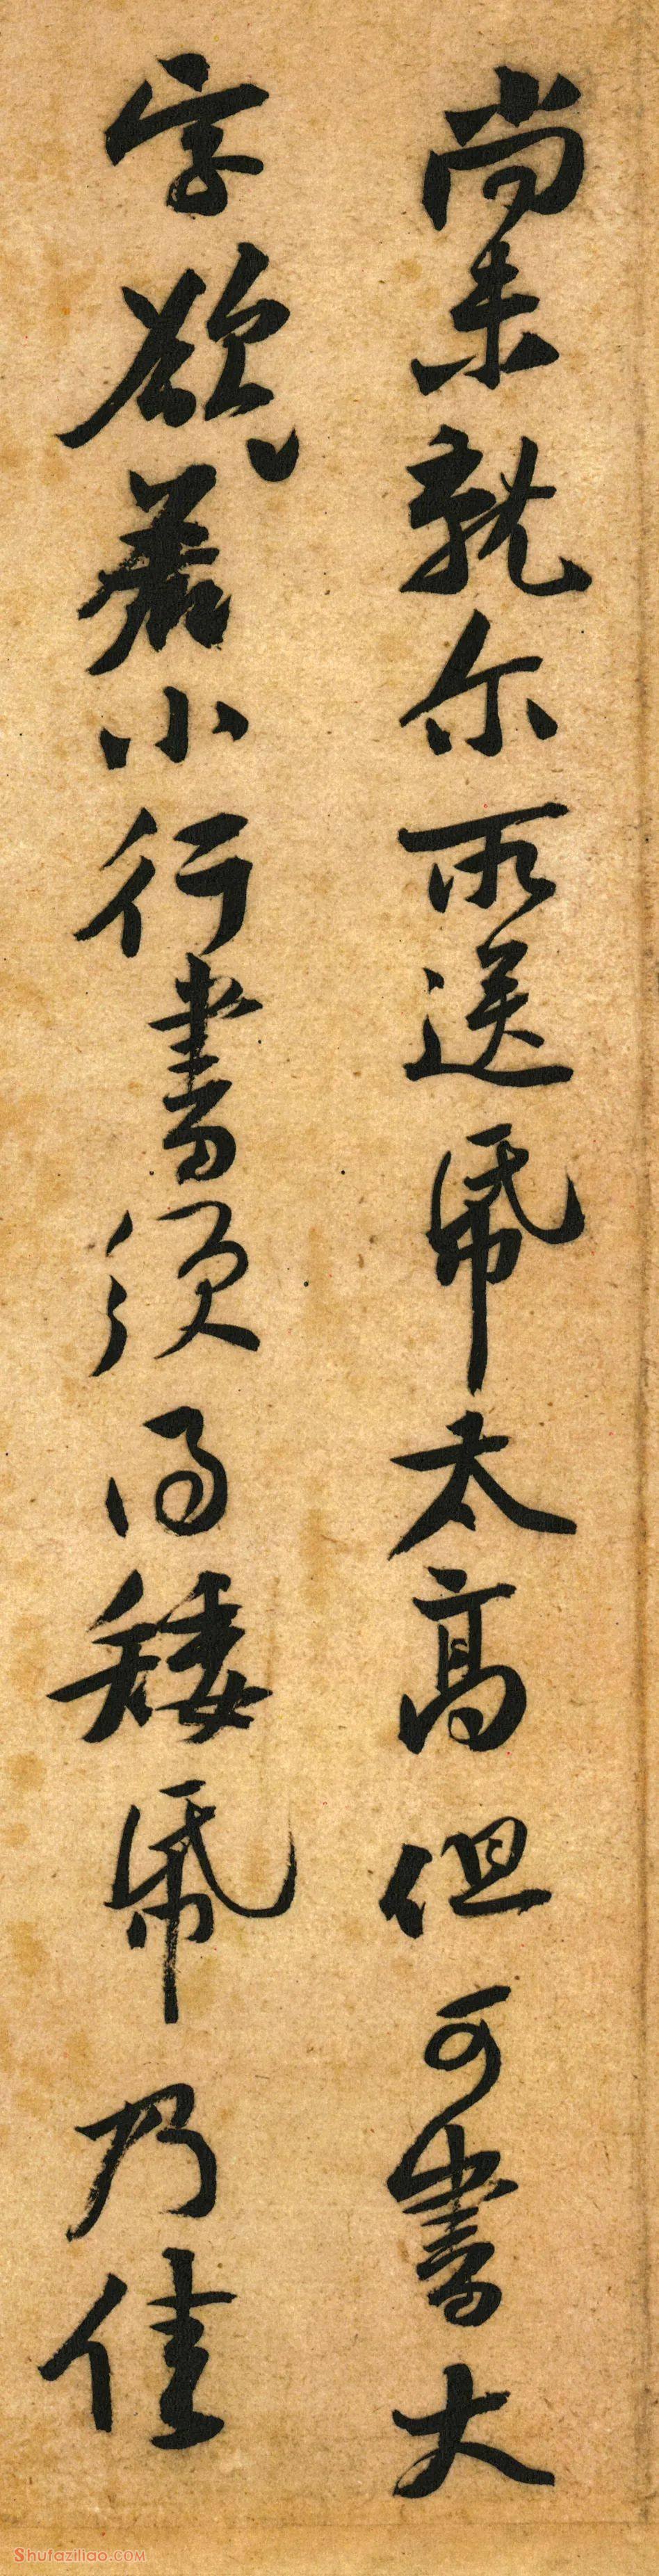 尚未就尔所送帋太高但可書大
字欲著小行書須得矮帋乃佳
Shufaziliao.COM